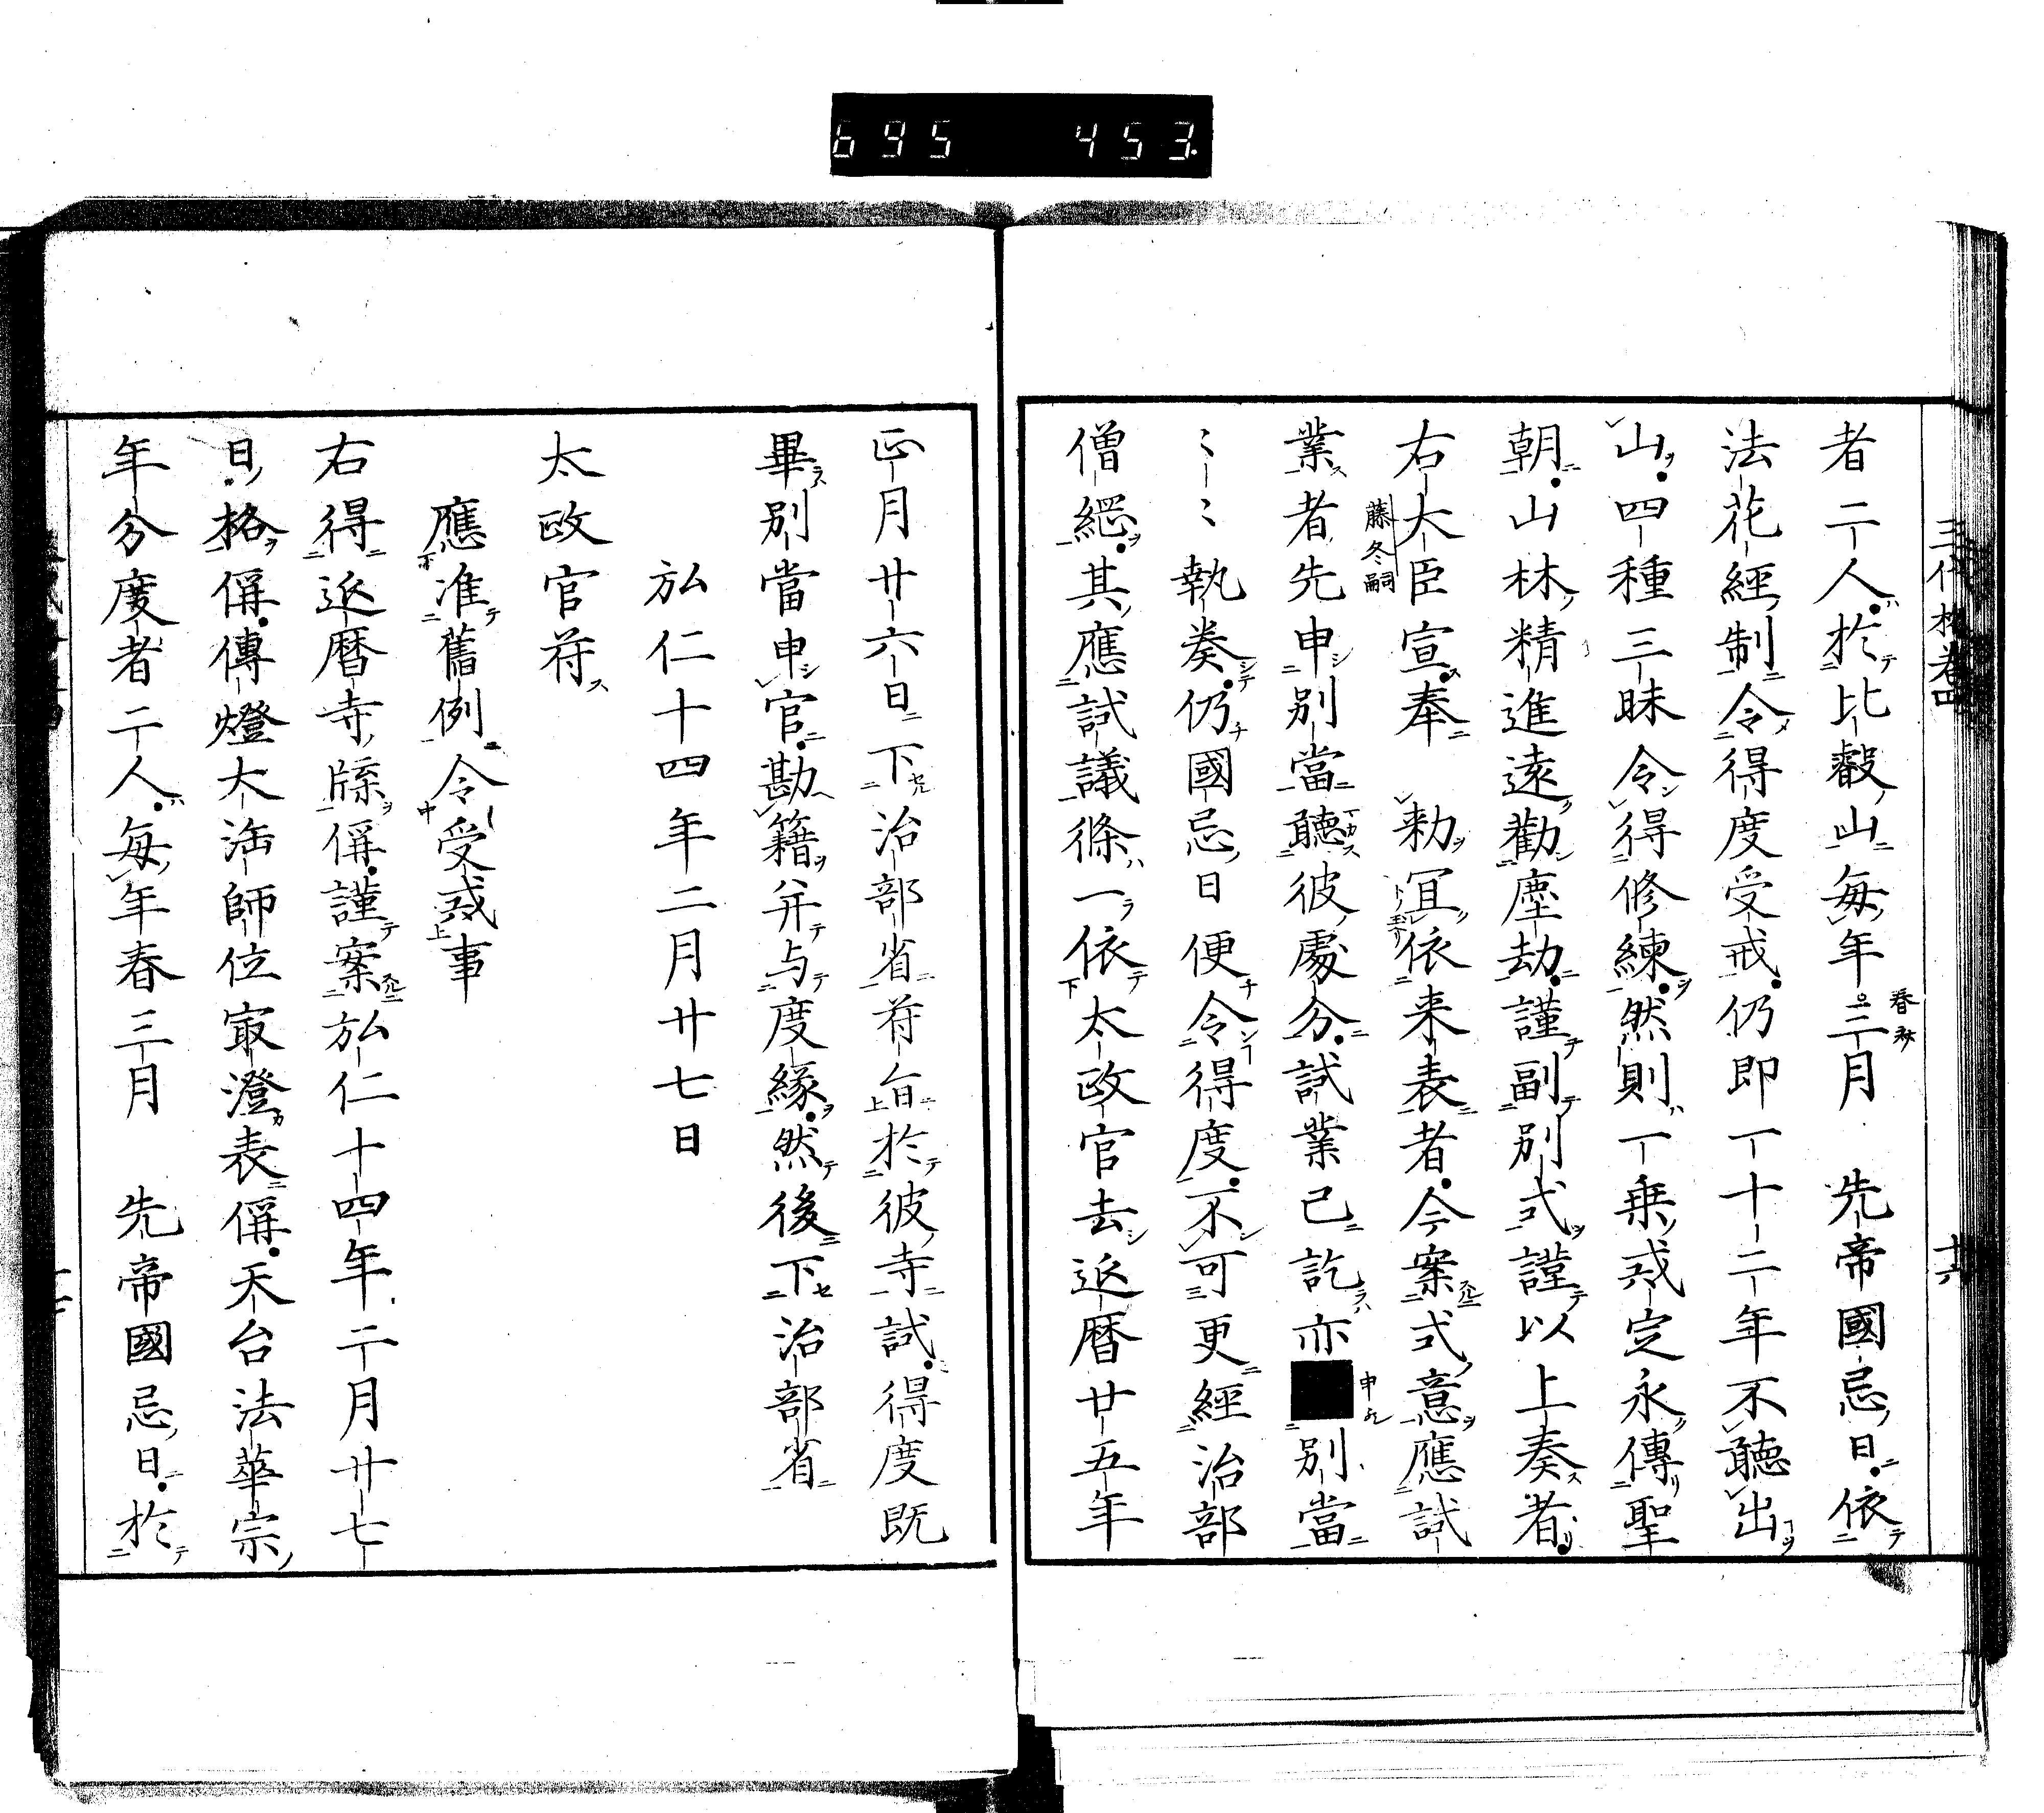 695 453
三代格卷四
十六
者二人於比叡山每年三月　先帝國忌日依
春秋
法花經制令得度受戒仍即一十二年不聽出
山四種三昧令得修練然則一乘戒定永傳聖
朝山林精進遠勸塵劫謹副別式謹以上奏者
右大臣宣奉　勅宜依来表者今案式意應試
藤冬嗣
業者先申別當聽彼處分試業已訖亦■別當
申
〻〻執奏仍國忌日便令得度不可更經治部
僧綱其應試議條一依太政官去延暦廿五年
正月廿六日下治部省符旨於彼寺試得度既
畢別當申官勘籍并与度緣然後下治部省
弘仁十四年二月廿七日
太政官符
應准舊例令受戒事
右得延暦寺牒偁謹案弘仁十四年二月廿七
日格偁傳燈大法師位最澄表偁天台法華宗
年分度者二人每年春三月　先帝國忌日於